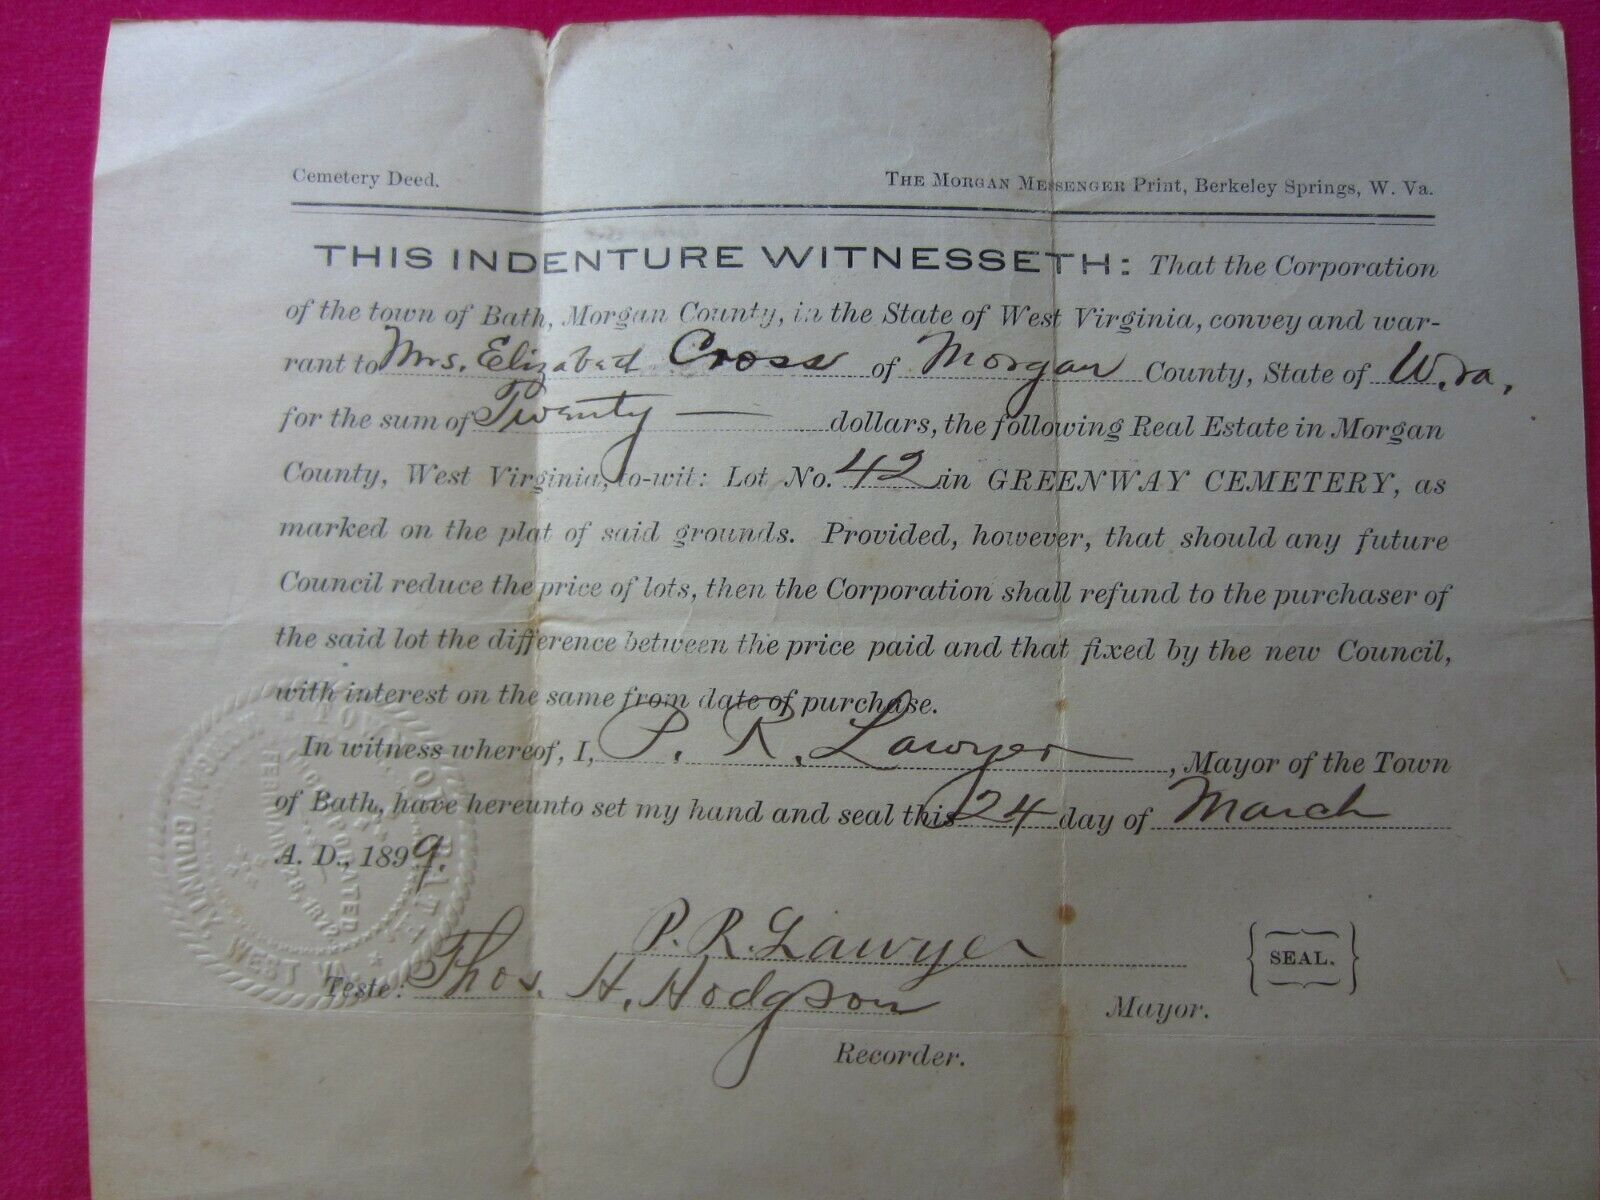 Cemetery Deed.
THE MORGAN MESSENGER Print, Berkeley Springs, W. Va.
THIS INDENTURE WITNESSETH: That the Corporation
of the town of Bath, Morgan County, in the State of West Virginia, convey and war-
rant to Mrs. Elizabed Cross of Morgan County, State of W. Va,
for the sum of Twenty — dollars, the following Real Estate in Morgan
County, West Virginia, to-wit: Lot No. 42 in GREENWAY CEMETERY, as
marked on the plat of said grounds. Provided, however, that should any future
Council reduce the price of lots, then the Corporation shall refund to the purchaser of
the said lot the difference between the price paid and that fixed by the new Council,
with interest on the same from date of purchase.
In witness whereof, I, P. R. Lawyer, Mayor of the Town
of Bath, have hereunto set my hand and seal this 24 day of March
A. D., 1899.
P. R. Lawyer
SEAL.
Teste: Thos. H. Hodgson
Mayor.
Recorder.
TOWN OF BATH
MORGAN COUNTY WEST VA.
INCORPORATED
FEBRUARY 28, 1872